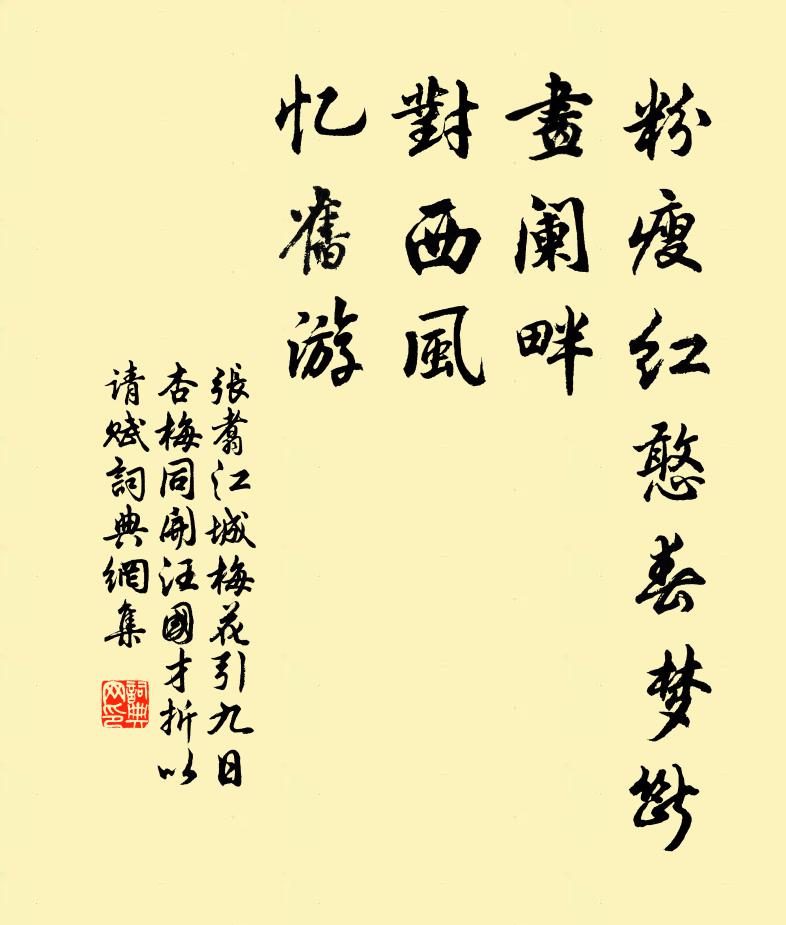 粉瘦红憨春梦断
畫阑畔
對西風
忆舊游
張翥江城梅花引九日
杏梅同開汪國才折以
请赋詞典網集
詞典网印